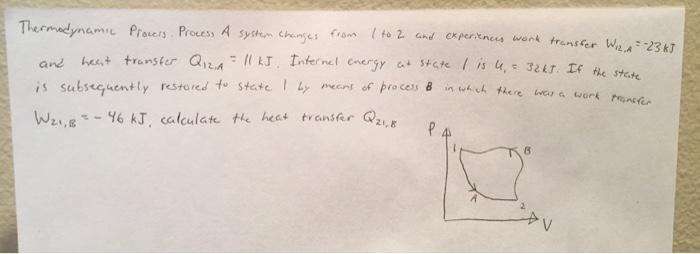 Thermodynamic Process. Process A system changes from 1 to 2 and experiences work transfer W12,A = -23 kJ
and heat transfer Q12,A = 11 kJ. Internel energy at state 1 is U1 = 32 kJ. If the state
is subsequently restored to state 1 by means of process B in which there was a work transfer
W21,B = - 46 kJ, calculate the heat transfer Q21,B
P
1 B
A
2
V